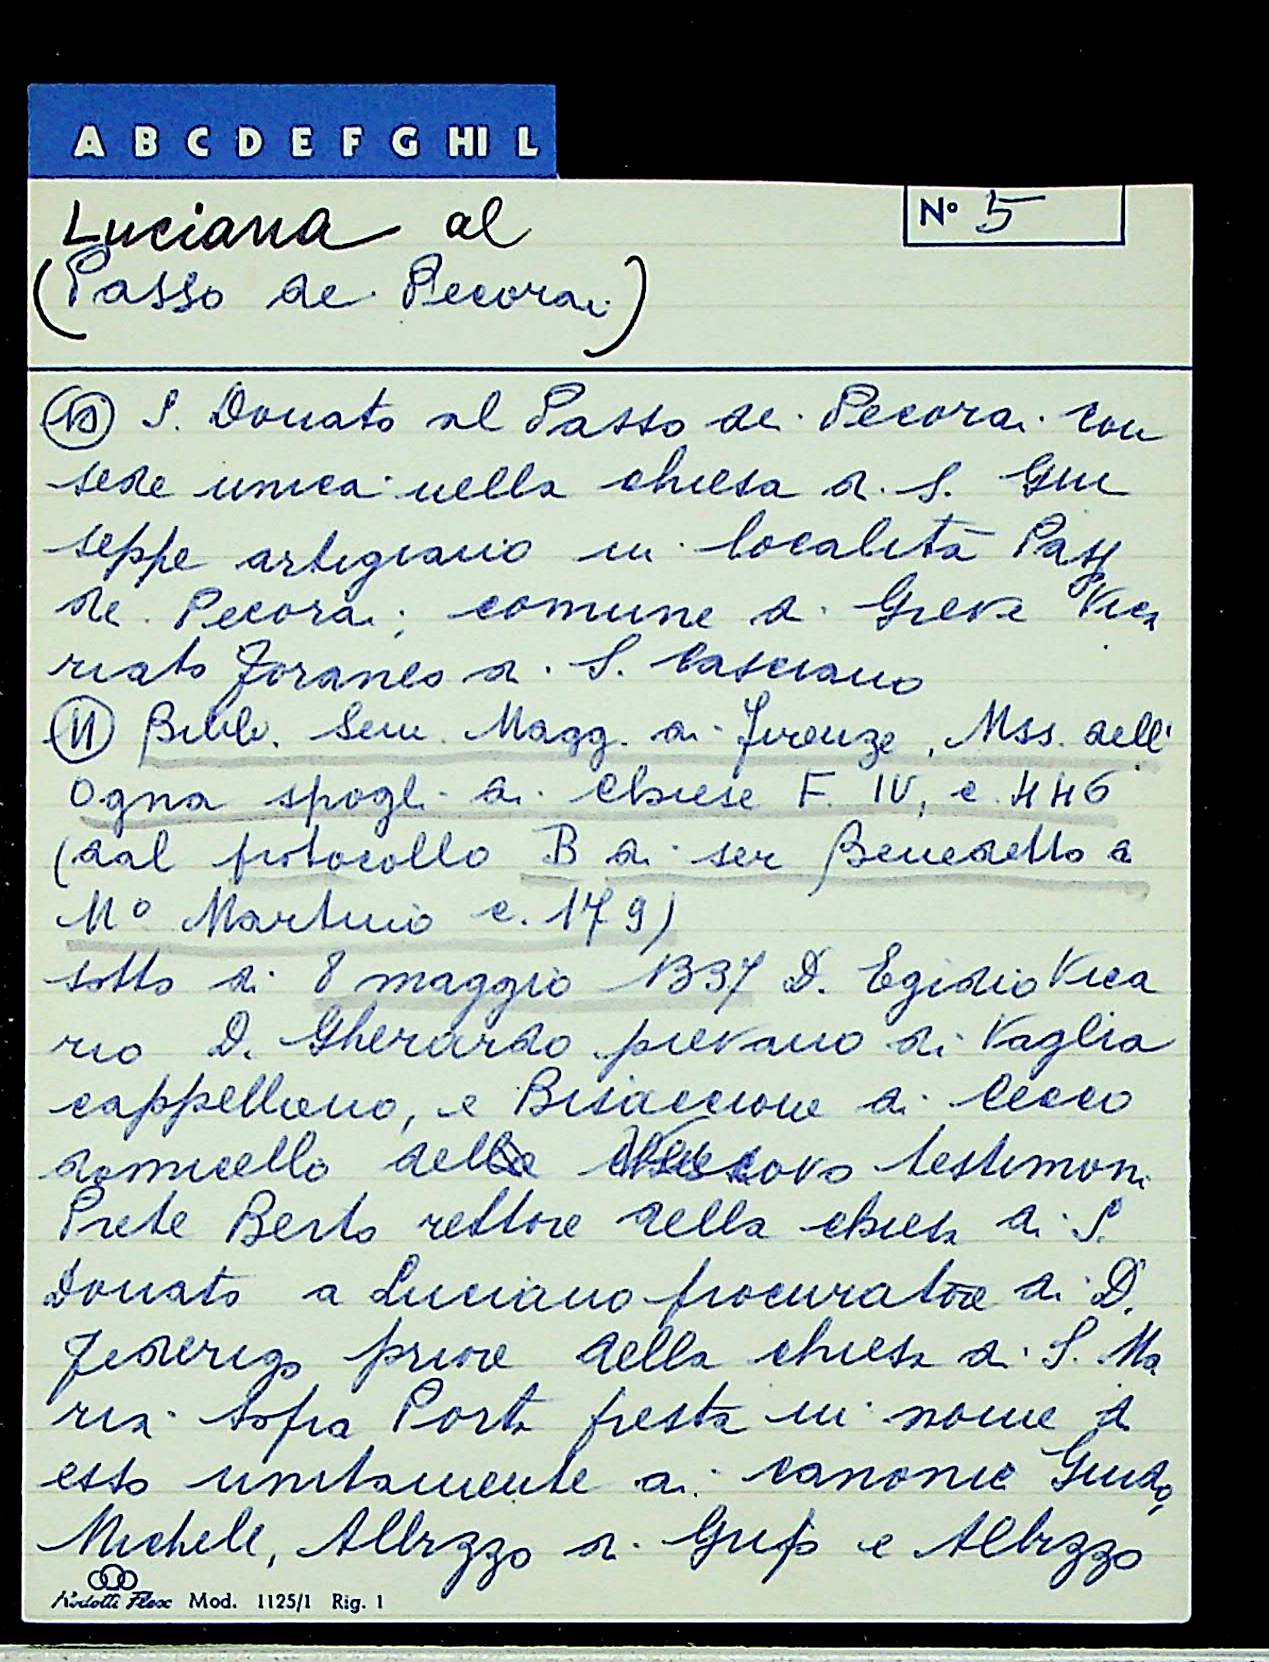 A B C D E F G HI L
Luciana al
Nº 5
(Passo dei Pecorai)
S. Donato al Passo dei Pecorai con
sede unica nella chiesa di S. Giu
seppe artigiano in località Pass
dei Pecorai; comune di Greve Vica
riato foraneo di S. Casciano
(11) Bibl. Sem. Magg. di Firenze, Mss. dell'
Ogna spogli di chiese F. IV, c. 446
(dal protocollo B di ser Benedetto di
Mº Martino c. 179)
sotto di 8 maggio 1337 D. Egidio Vica
rio D. Gherardo pievano di Vaglia
cappellano, e Bisaccione di Cecco
domicello del testimoni
Prete Berto rettore della chiesa di S.
Donato a Luciano procuratore di D.
Federigo priore della chiesa di S. Ma
ria Sopra Porta presta in nome di
esso unitamente ai canonici Guido,
Michele, Albizzo di e Albizzo
Mod. 1125/1 Rig. 1